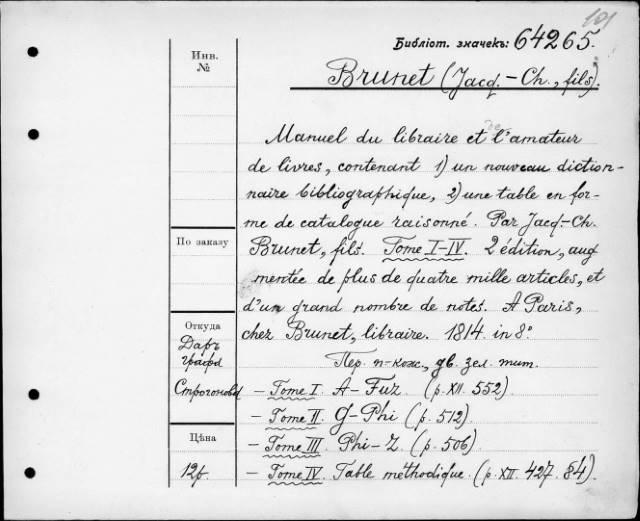 101
Библіот. значекъ: 64265.
Инв.
№
Brunet (Jacq.-Ch., fils).
Manuel du libraire et de l'amateur
de livres, contenant 1) un nouveau diction-
naire bibliographique, 2) une table en for-
me de catalogue raisonné. Par Jacq.-Ch.
По заказу
Brunet, fils. Tome I-IV. 2 édition, aug
mentée de plus de quatre mille articles, et
d'un grand nombre de notes. A Paris,
Откуда
chez Brunet, libraire. 1814. in 8°
Даръ
графа
Пер. п-кожс., дв. зел. тит.
Строгонова
- Tome I. A-Fuz (p. XII. 552)
- Tome II. G-Phi (p. 512)
Цѣна
- Tome III. Phi-Z. (p. 506)
12р.
- Tome IV. Table méthodique. (p. XII. 427. 84).